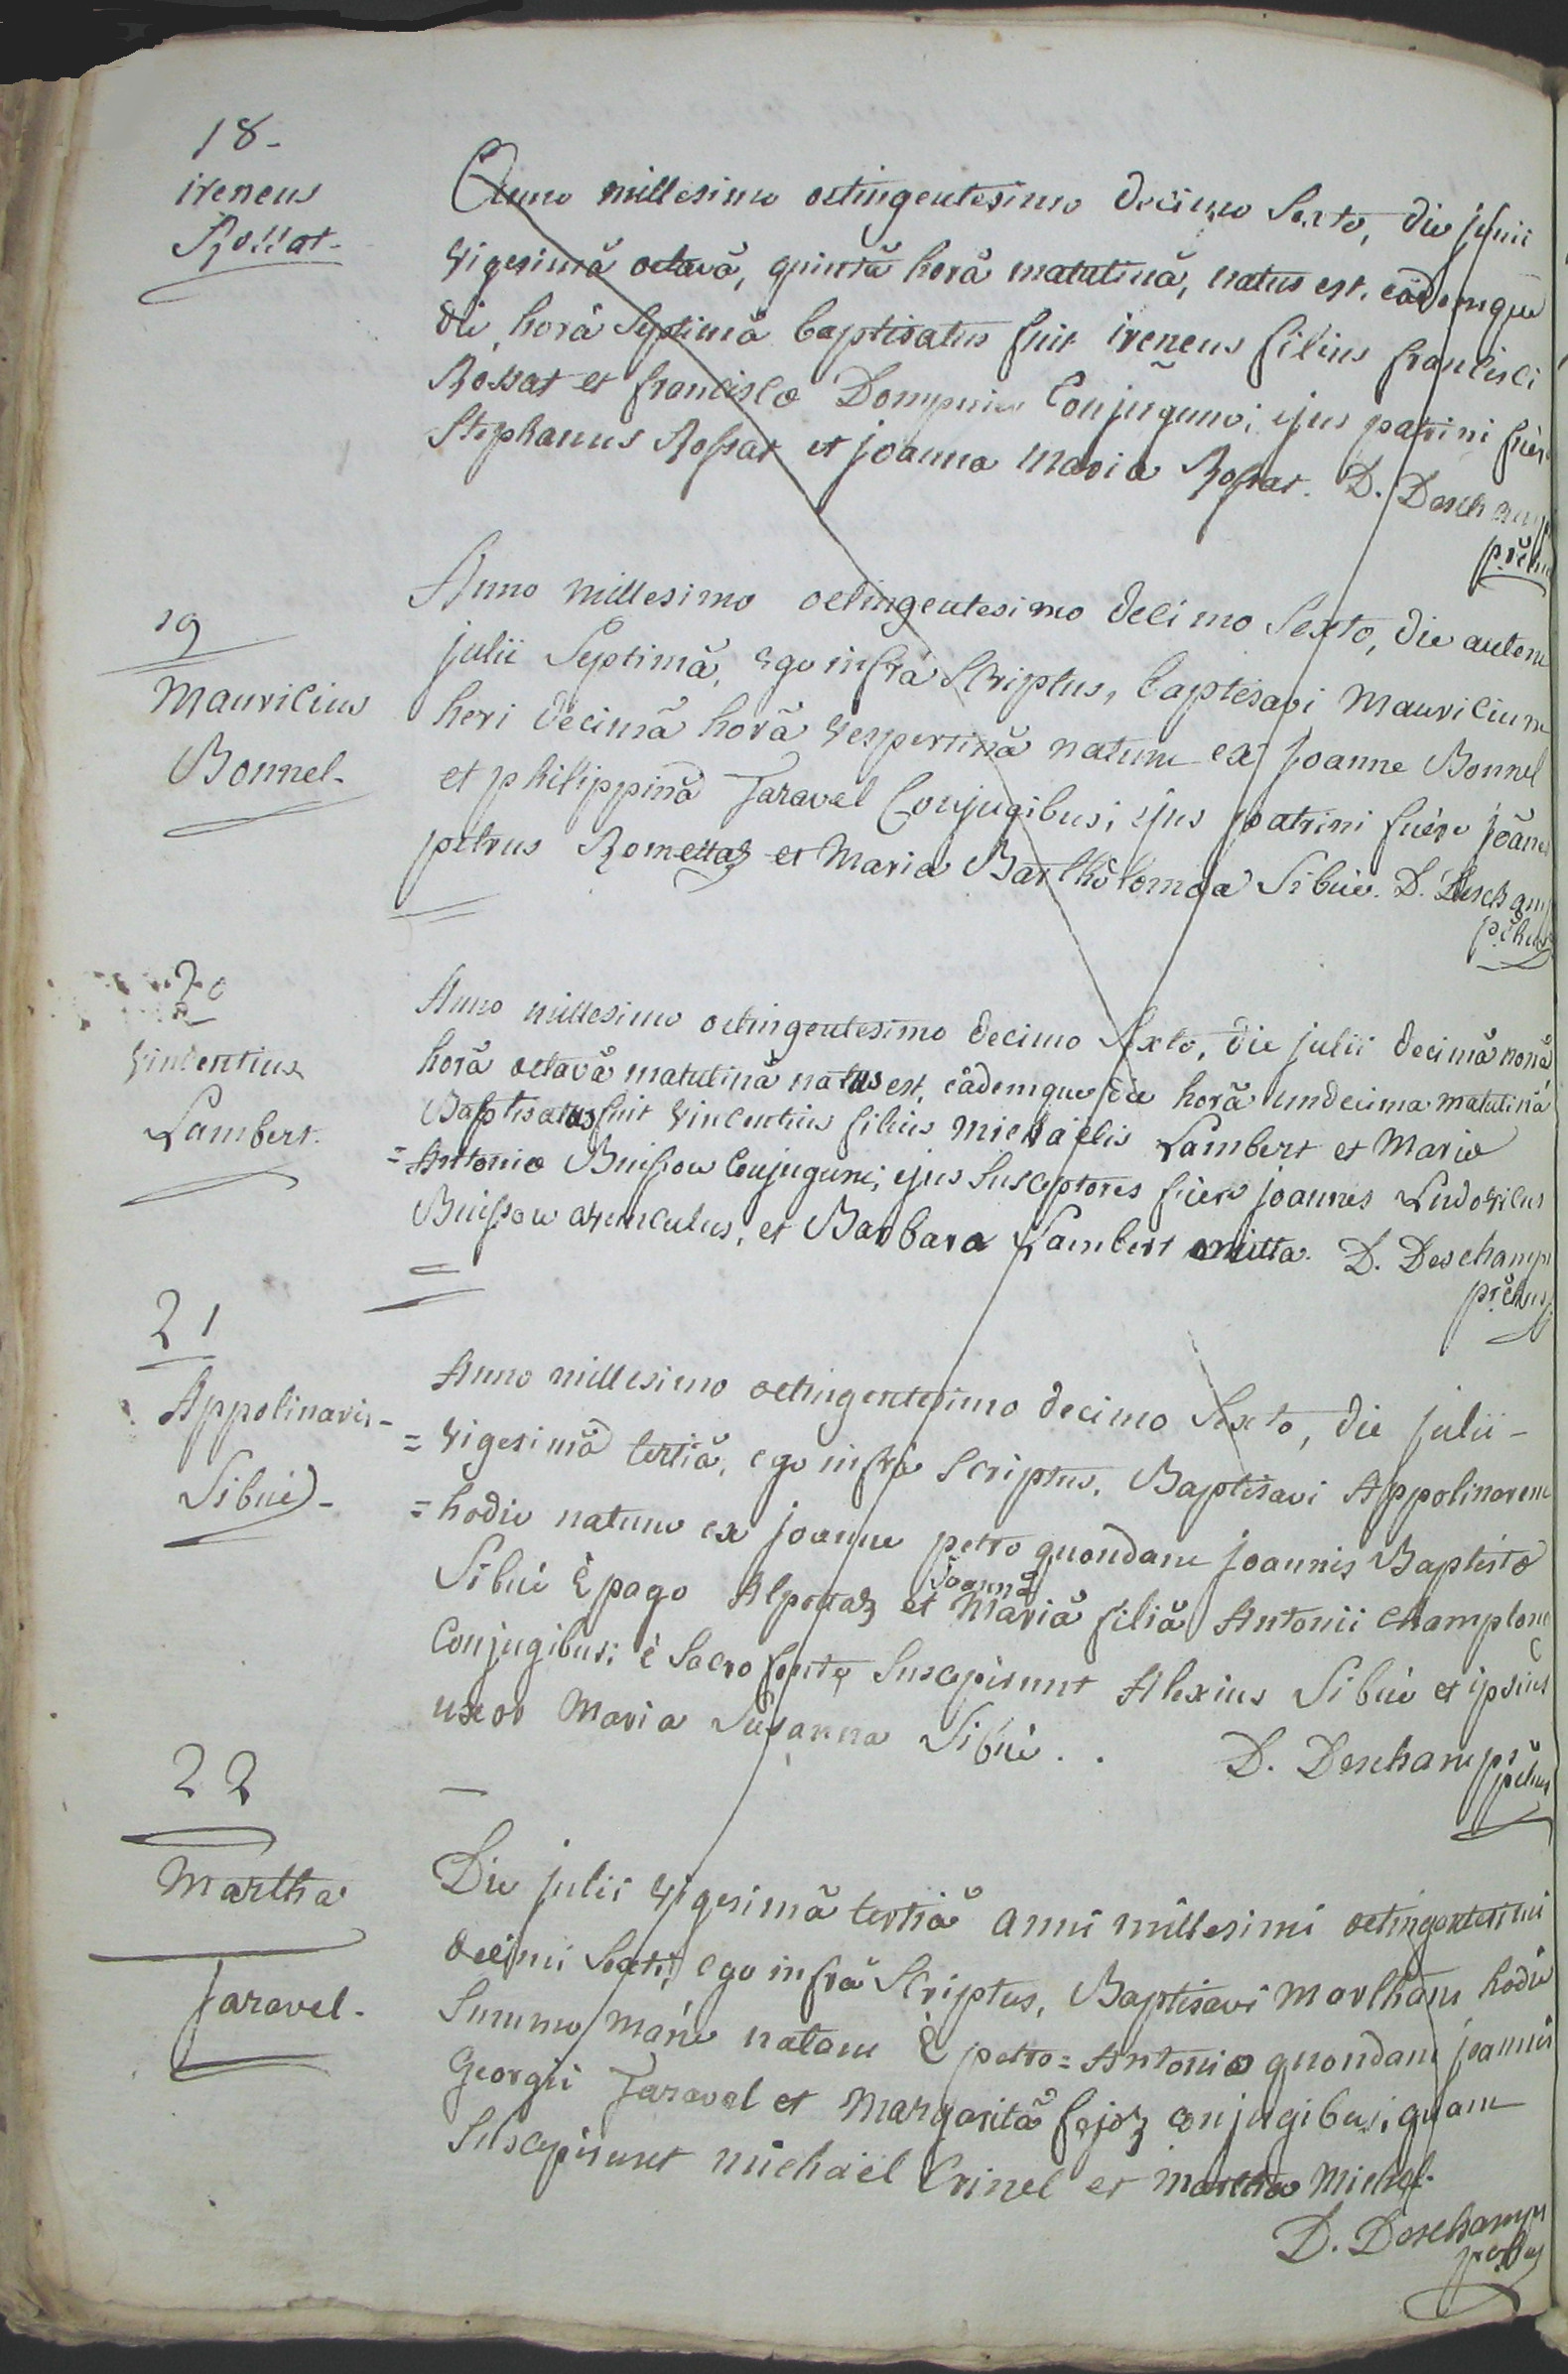 18-
ireneus
Rossat-
Anno millesimo octingentesimo decimo sexto, die junii
vigesimâ octavâ, quintâ horâ matutinâ, natus est, eâdemque
die, horâ septimâ baptisatus fuit ireneus filius francisci
Rossat et franciscæ Dompnier Conjugum; ejus patrini fuêre
Stephanus Rossat et joanna maria Rossat. D. Deschamps
19
Mauricius
Bonnel-
Anno millesimo octingentesimo decimo sexto, die autem
julii septimâ, ego infrà scriptus, baptisavi mauricium
heri decimâ horâ vespertinâ natum ex joanne Bonnel
et philippinâ Taravel Conjugibus; ejus patrini fuêre joannes
petrus Romettaz et Maria Bartholomea Sibué. D. Deschamps
20
vincentius
Lambert.
Anno millesimo octingentesimo decimo sexto, die julii decimâ nonâ
horâ octavâ matutinâ natus est, eâdemque die horâ undecima matutinâ
Baptisatus fuit vincentius filius michaëlis Lambert et Mariæ
= Antoniæ Buisson Conjugum; ejus susceptores fuêre joannes Ludovicus
Buisson avunculus, et Barbara Lambert amitta. D. Deschamps
21
Appolinaris-
Sibué-
Anno millesimo octingentesimo decimo sexto, die julii-
= vigesimâ tertiâ, ego infrà scriptus, Baptisavi Appolinarem
= hodie natum ex joanne petro quondam joannis Baptistæ
Sibué è pago Alpettaz et joannâ Mariâ filiâ Antonii Champlong
Conjugibus; è sacro fonte susceperunt Alexius Sibué et ipsius
uxor Maria Susanna Sibué..
D. Deschamps
22
Martha
Taravel-
Die julii vigesimâ tertiâ anni millesimi octingentesimi
decimi sexti, ego infrà scriptus, Baptisavi Martham hodie
summo mane natam è petro=Antonio quondam joannis
Georgii Taravel et Margaritâ fejoz conjugibus; quam
susceperunt michaël Crinel et martha Michel.
D. Deschamps